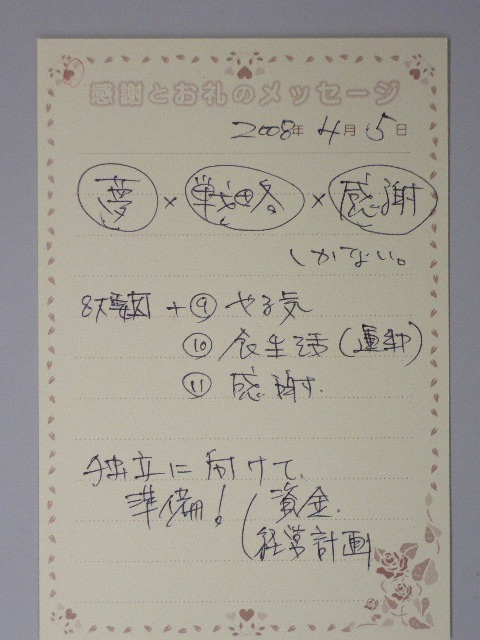 感謝とお礼のメッセージ
2008年 4月 5日
夢 × 戦略 × 感謝
しかない。
8大要因 + ⑨ やる気
⑩ 食生活(運動)
⑪ 感謝。
独立に向けて、
準備! (資金、
経営計画